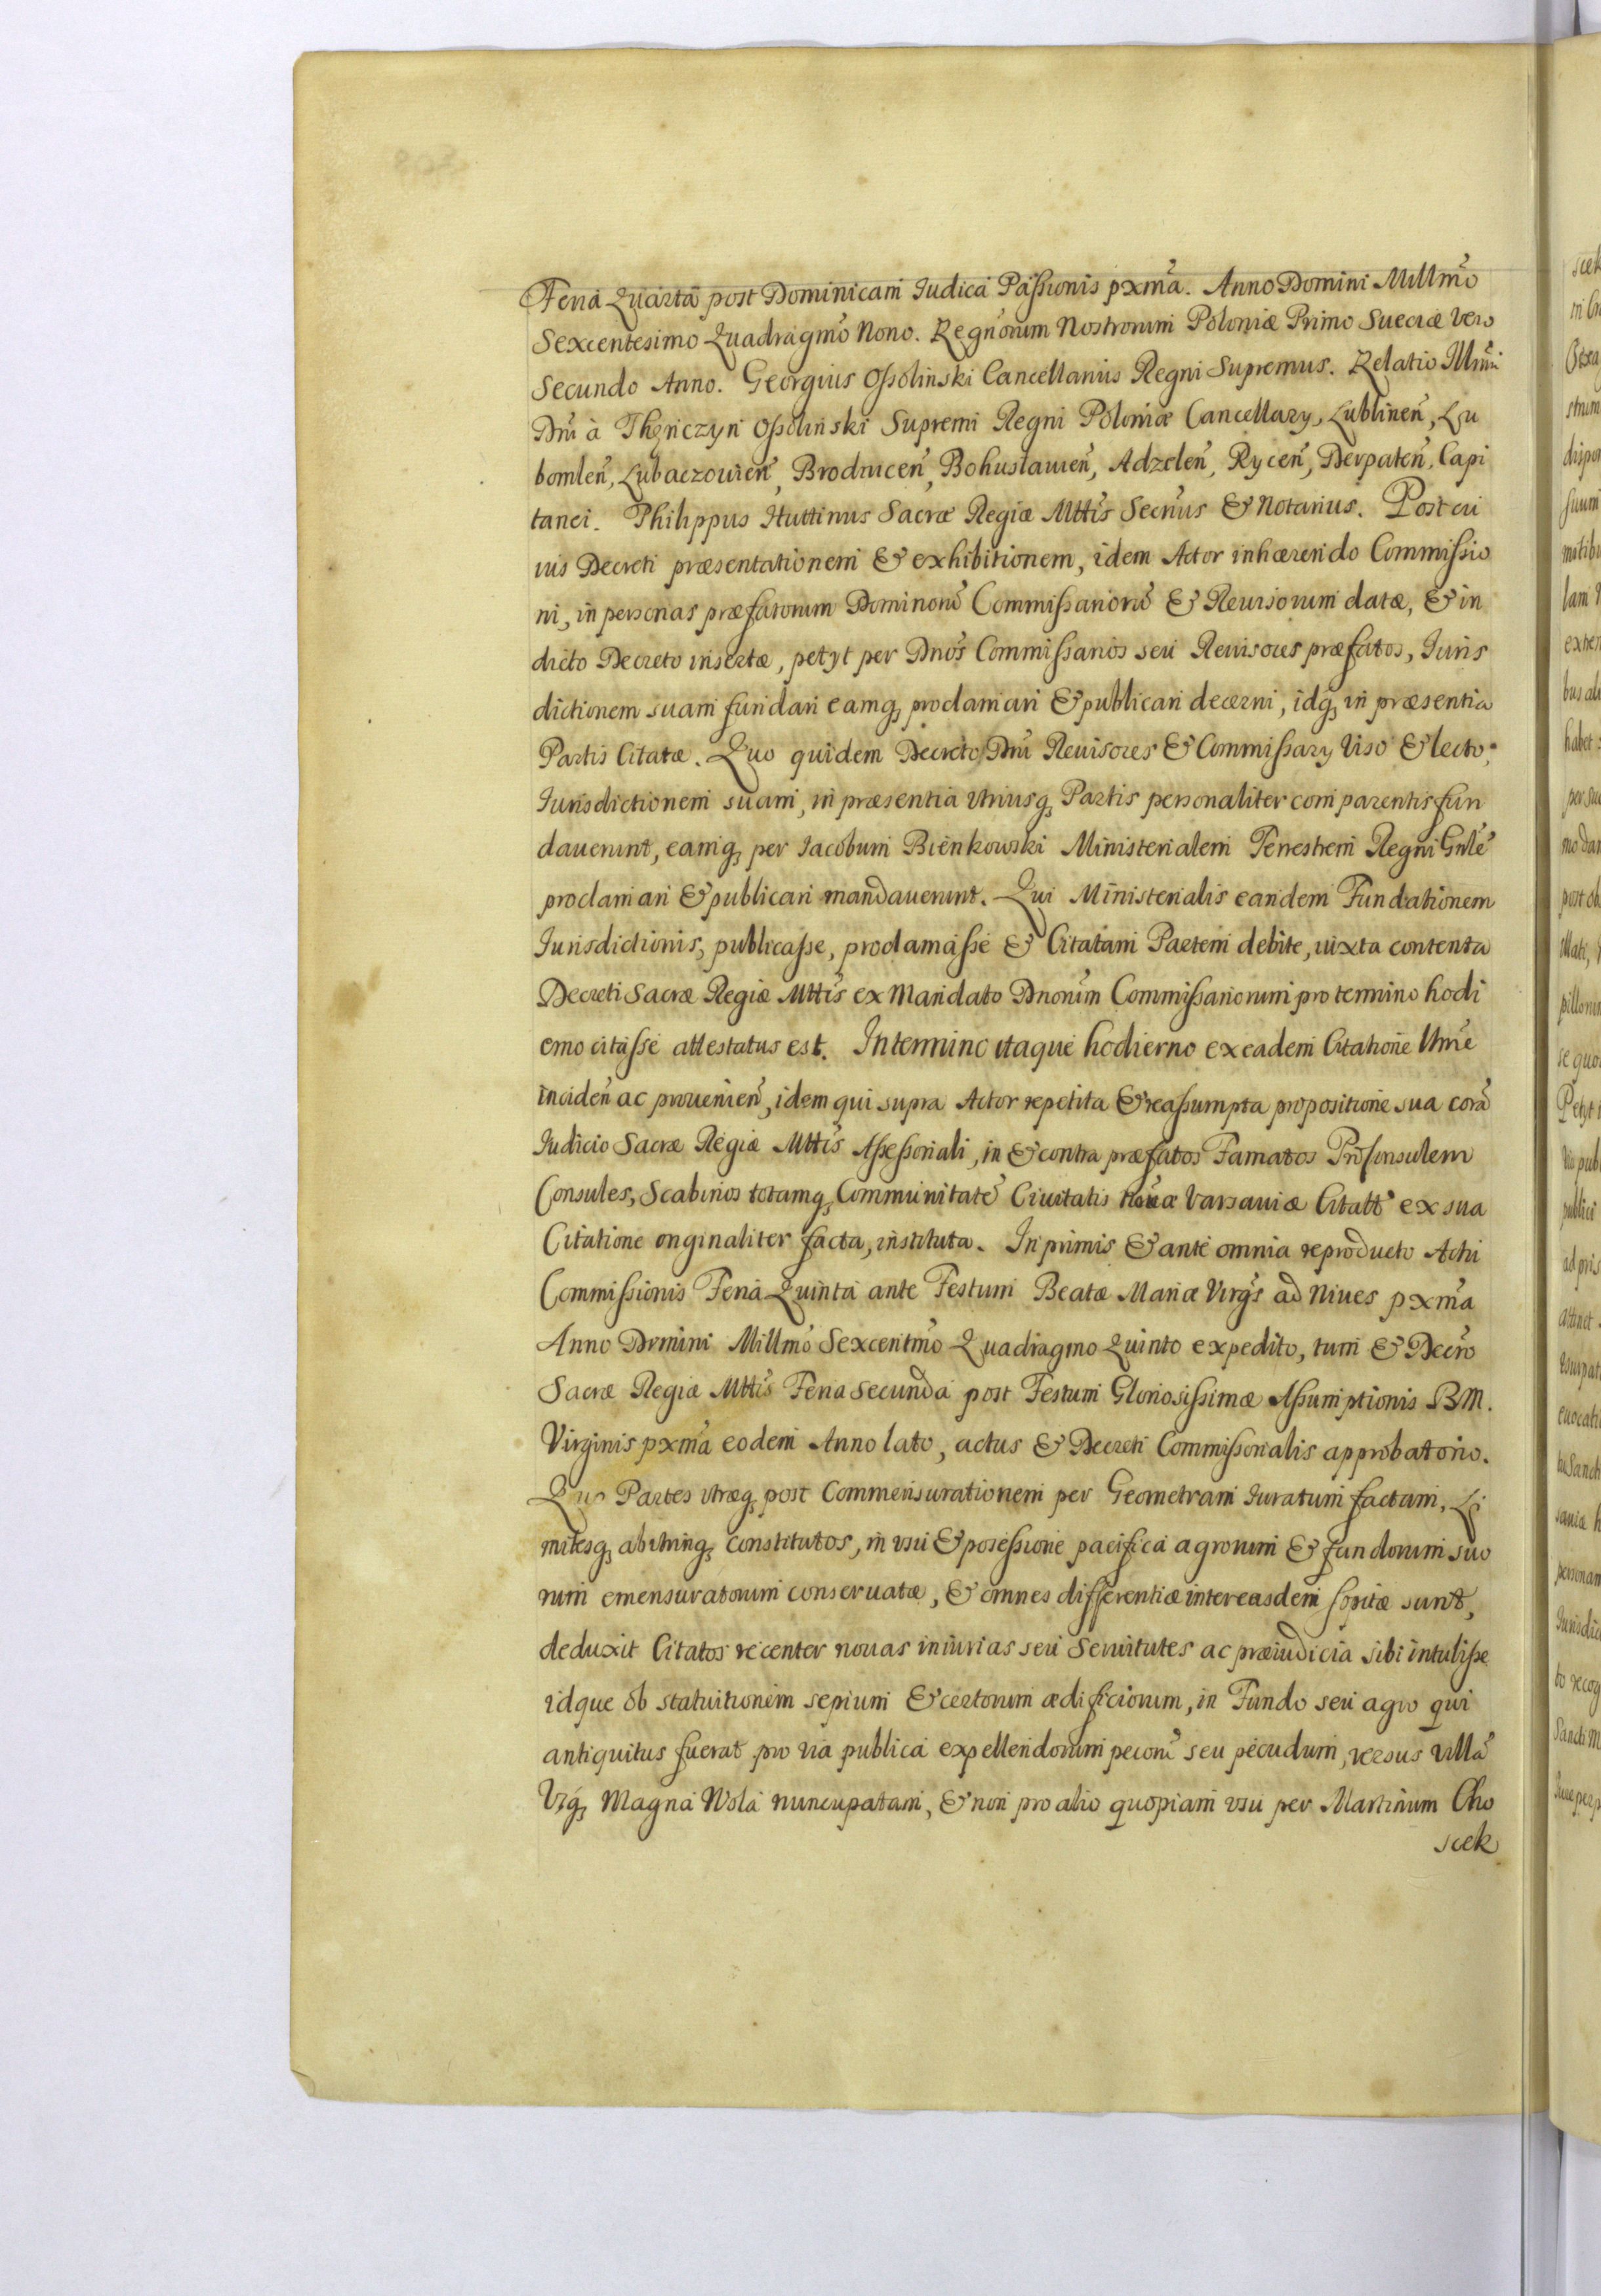 Feria Quarta post Dominicam Iudica Passionis pxmã. Anno Domini Millmõ
Sexcentesimo Quadragmõ Nono. Regnorum Nostrorum Poloniæ Primo Sueciæ vero
Secundo Anno. Georgius Ossolinski Cancellarius Regni Supremus. Relatio Illmi
Dni à Thęnczyn Ossolinski Supremi Regni Poloniæ Cancellary, Lublineñ, Lu
bomleñ, Lubaczouieñ, Brodniceñ, Bohuslauieñ, Adzeleñ, Ryceñ, Derpateñ, Capi
tanei. Philippus Huttinus Sacræ Regiæ Mttis Secrius & Notarius. Post cu
ius Decreti præsentationem & exhibitionem, idem Actor inhærendo Commissio
ni, in personas præfatorum Dominorũ Commissariorũ & Reuisorum datæ, & in
dicto Decreto insertæ, petyt per Dnos Commissarios seu Reuisores præfatos, Iuris
dictionem suam fundari eamq, proclamari & publicari decerni, idq, in præsentia
Partis Citatæ. Quo quidem Decreto Dni Reuisores & Commissary viso & lecto,
Iurisdictionem suam, in præsentia vtriusq, Partis personaliter comparentis fun
dauerunt, eamq, per Iacobum Bieńkowski Ministerialem Terrestrem Regni Gnlẽ
proclamari & publicari mandauerunt. Qui Ministerialis eandem Fundationem
Iurisdictionis, publicasse, proclamasse & Citatam Partem debite, iuxta contenta
Decreti Sacræ Regiæ Mttis ex Mandato Dnorum Commissariorum pro termino hodi
erno citasse attestatus est. In termino itaque hodierno ex eadem Citatione Vtnẽ
incideñ ac prouenieñ, idem qui supra Actor repetita & reassumpta propositione sua corã
Iudicio Sacræ Regiæ Mttis Assessoriali, in & contra præfatos Famatos Proconsulem
Consules, Scabinos totamq, Communitatẽ Ciuitatis nouæ Varsauiæ Citatt ex sua
Citatione originaliter facta, instituta. In primis & ante omnia reproducto Actu
Commissionis Feria Quinta ante Festum Beatæ Mariæ Virgs ad Niues pxmã
Anno Domini Millmõ Sexcentmõ Quadragmo Quinto expedito, tum & Decrõ
Sacræ Regiæ Mttis Feria Secunda post Festum Gloriosissimæ Assumptionis B. M.
Virginis pxmã eodem Anno lato, actus & Decreti Commissorialis approbatorio.
Quo Partes vtræq, post Commensurationem per Geometram Iuratum factam, Li
mitesq, ab vtrinq, constitutos, in vsu & possessione pacifica agrorum & fundorum suo
rum emensuratorum conseruatæ, & omnes differentiæ inter easdem sopitæ sunt,
deduxit Citatos recenter nouas iniurias seu Seruitutes ac præiudicia sibi intulisse
idque ob statuitionem sepium & certorum ædificiorum, in Fundo seu agro qui
antiquitus fuerat pro via publica expellendorum pecorũ seu pecudum, versus villã
Vzq, Magna Wola nuncupatam, & non pro alio quopiam vsu per Martinum Cho
scek